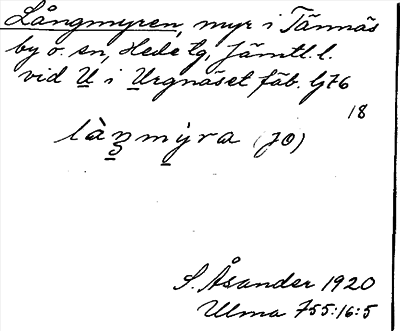 Långmyren, myr i Tännäs
by o. sn, Hede tg, Jämtl. l.
vid U i Urgnäset fäb. G76
18
làn̠m̠ýra (JO)
S. Åsander 1920
Ulma 755:16:5